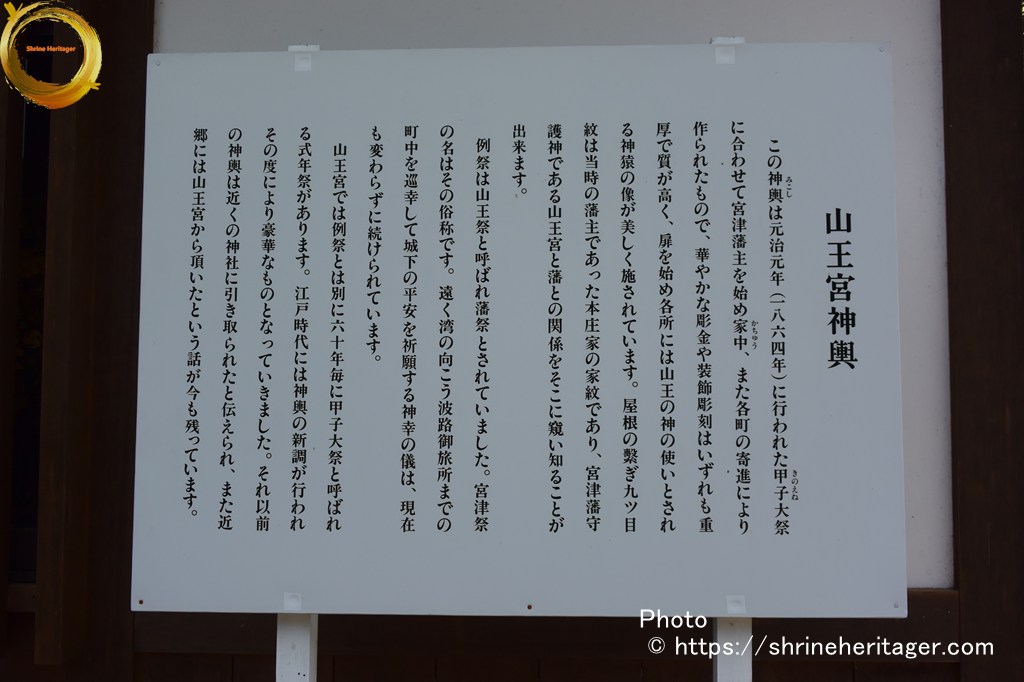 山王宮神輿
この神輿は元治元年（一八六四年）に行われた甲子大祭
みこし
きのえね
に合わせて宮津藩主を始め家中、また各町の寄進により
かちゅう
作られたもので、華やかな彫金や装飾彫刻はいずれも重
厚で質が高く、扉を始め各所には山王の神の使いとされ
る神猿の像が美しく施されています。屋根の繋ぎ九ツ目
紋は当時の藩主であった本庄家の家紋であり、宮津藩守
護神である山王宮と藩との関係をそこに窺い知ることが
出来ます。
例祭は山王祭と呼ばれ藩祭とされていました。宮津祭
の名はその俗称です。遠く湾の向こう波路御旅所までの
町中を巡幸して城下の平安を祈願する神幸の儀は、現在
も変わらずに続けられています。
山王宮では例祭とは別に六十年毎に甲子大祭と呼ばれ
る式年祭があります。江戸時代には神輿の新調が行われ
その度により豪華なものとなっていきました。それ以前
の神輿は近くの神社に引き取られたと伝えられ、また近
郷には山王宮から頂いたという話が今も残っています。
Shrine Heritager
Photo
© https://shrineheritager.com